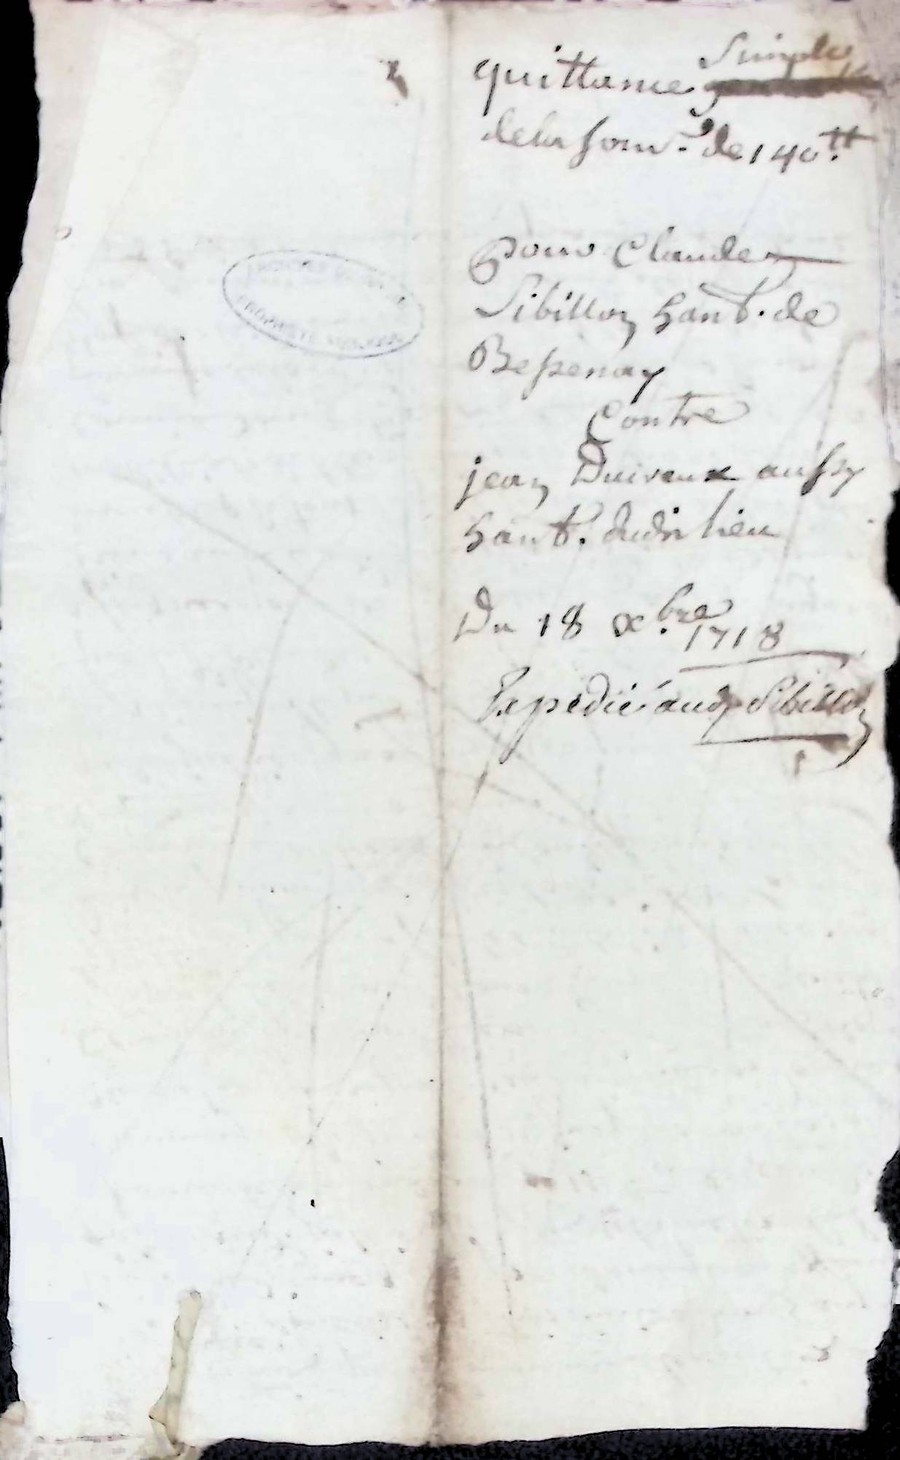 quittance Simple
de la som.e de 140.tt
pour Claude
Sibillon habt. de
Bessenay
Contre
jean Duivaux aussy
habt. dudit lieu
Du 18 xbre 1718
Expedié aud Sibillon